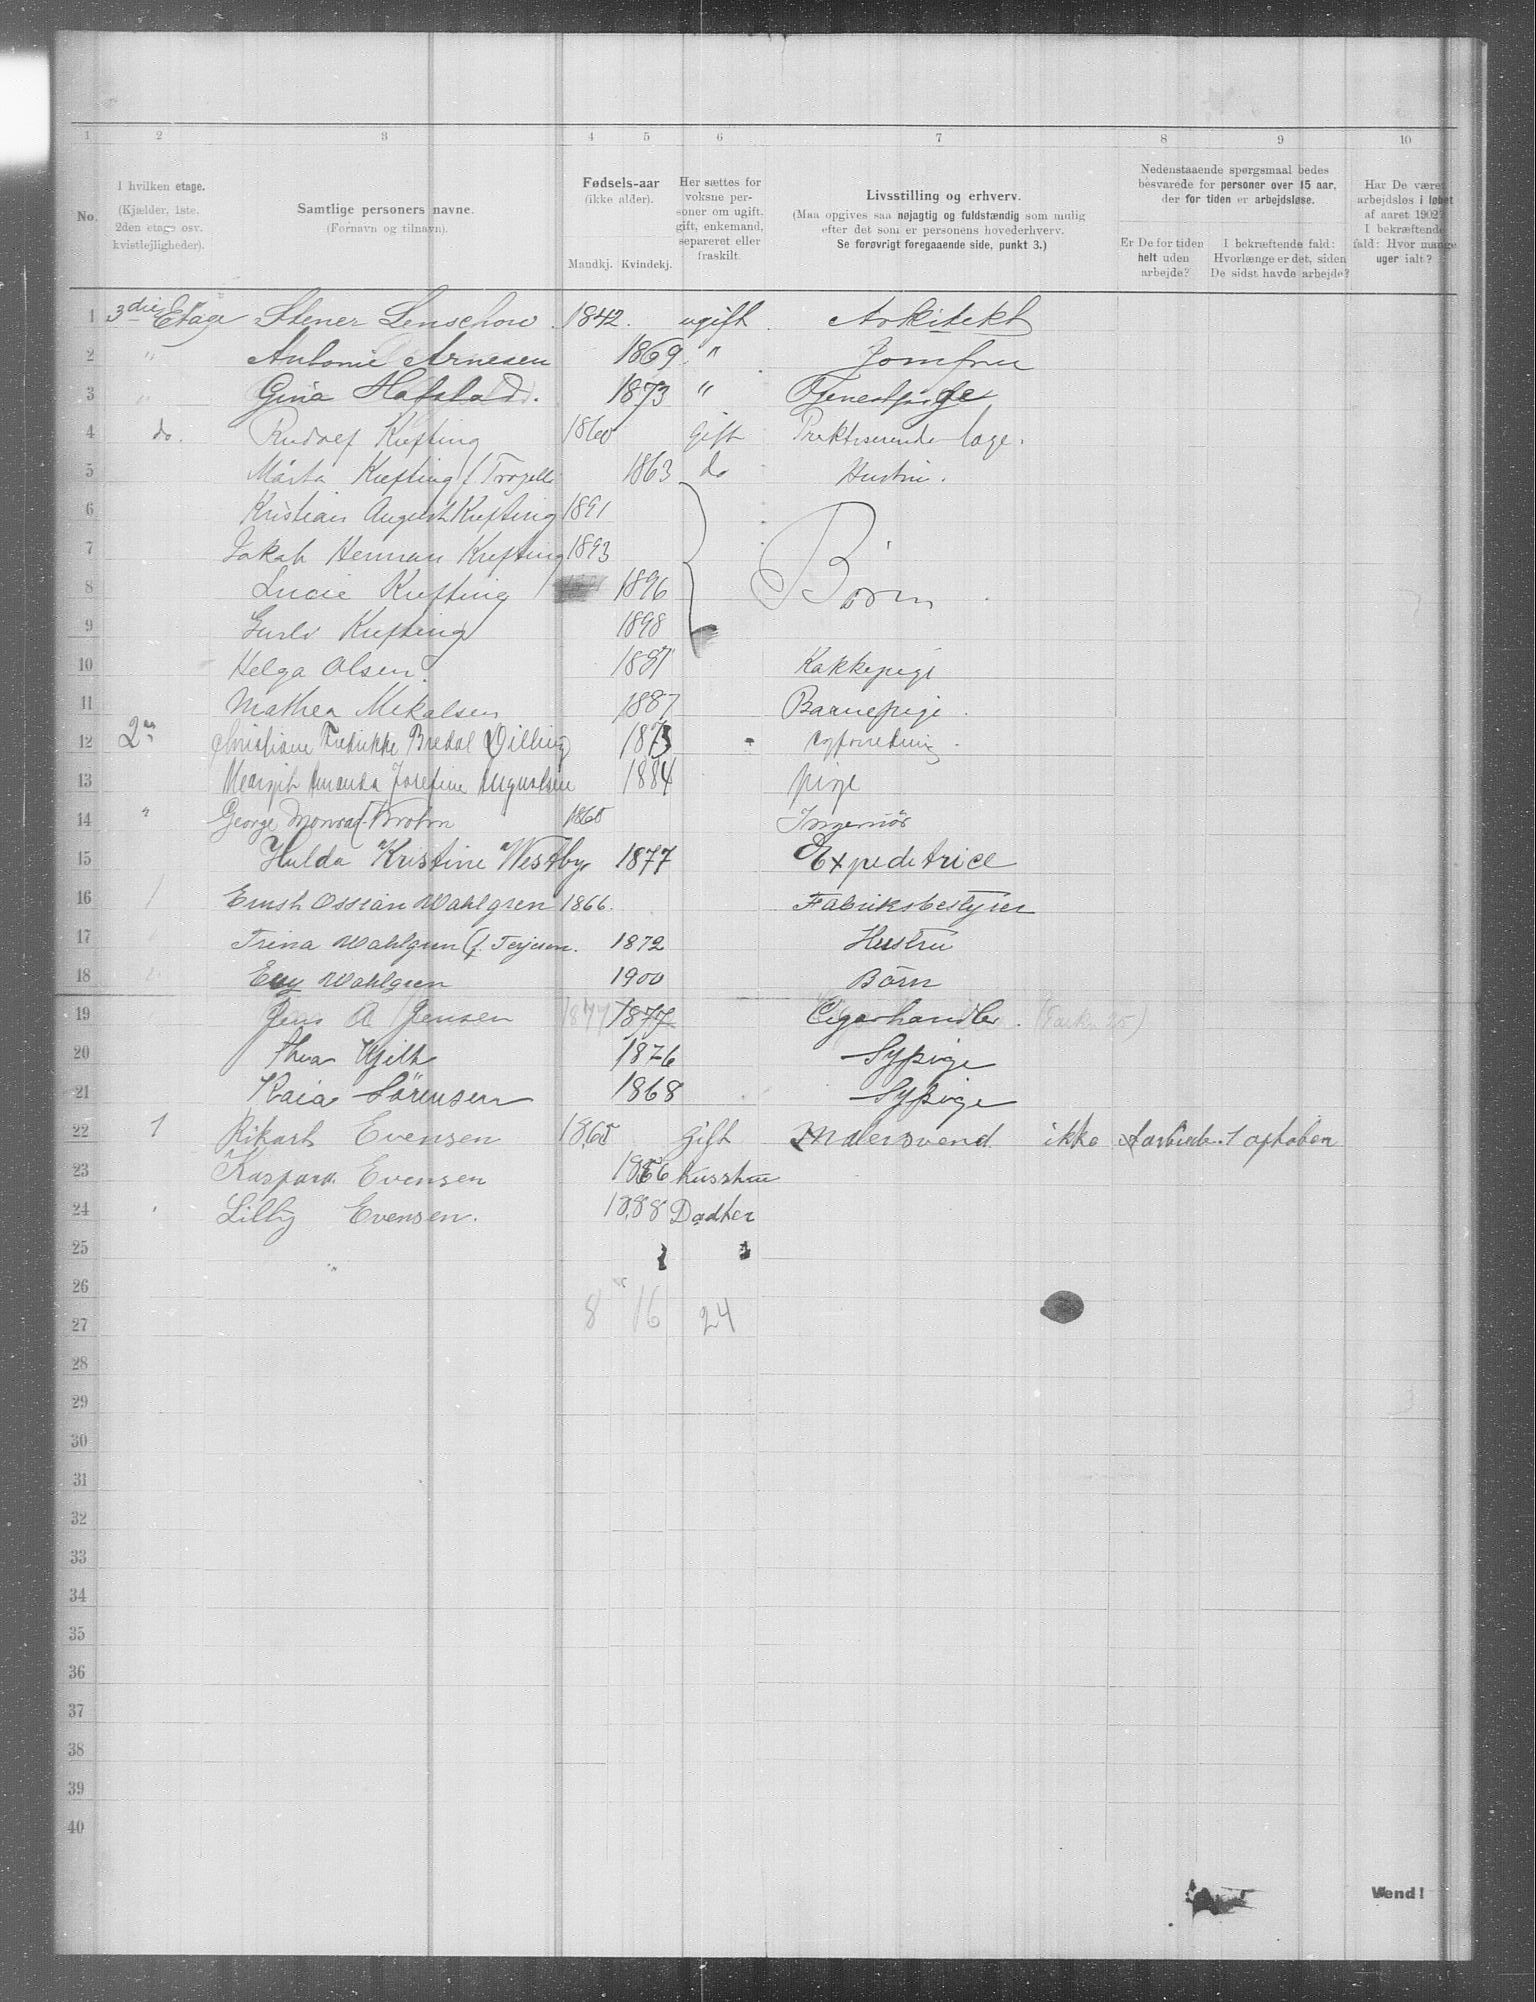 1 2 3 4 5 6 7 8 9 10
No.
I hvilken etage.
(Kjælder, 1ste, 2den etage osv. kvistlejligheder).
Samtlige personers navne.
(Fornavn og tilnavn).
Fødsels-aar
(ikke alder).
Mandkj. Kvindekj.
Her sættes for voksne personer om ugift, gift, enkemand, separeret eller fraskilt.
Livsstilling og erhverv.
(Maa opgives saa nøjagtig og fuldstændig som mulig efter det som er personens hovederhverv.
Se forøvrigt foregaaende side, punkt 3.)
Nedenstaaende spørgsmaal bedes besvarede for personer over 15 aar, der for tiden er arbejdsløse.
Er De for tiden helt uden arbejde?
I bekræftende fald: Hvorlænge er det, siden De sidst havde arbejde?
Har De været arbejdsløs i løbet af aaret 1902? I bekræftende fald: Hvor mange uger ialt?
1 3die Etage Stener Lenschow 1842. ugift Arkitekt
2 " Antonie Arnesen 1869 " Jomfru
3 " Gina Hafslad. 1873 " Tjenestpige
4 do. Rudolf Kiefting 1860 gift Praktiserende læge.
5 Märta Kiefting f. 1863 do Hustru.
6 Kristian August Kiefting 1891
7 Jakob Herman Kiefting 1893
8 Lucie Kiefting 1896 Börn
9 Kiefting 1898
10 Helga Olsen. 1881 Kakkepige
11 Mathea Mikalsen 1887 Baanepige.
12 2 Christiane Fredrikke Bredal Dilling 1873
13 Margit Amanda Josefine Augustsen 1884 pige
14 " George Monrad Krohn 1865 Ingeniör
15 Hulda Kristine Westby 1877 Expeditrice
16 Ernst Ossian Wahlgren 1866. Fabriksbestyrer
17 Trina Wahlgren (f. Terjesen. 1872 Hustru
18 Wahlgren 1900 Börn
19 Jens A Jensen 1877 1877 Cigarhandler.
20 Thea 1876 Sypige
21 Kaia Sörensen 1868 Sypige
22 1 Rikart Evensen 1865 gift Malersvend ikke 1 oktober
23 Kaspara Evensen 1866 Husstru
24 Lilly Evensen. 1888 Dadter
25
26
27 8 16 24
28
29
30
31
32
33
34
35
36
37
38
39
40
Vend!